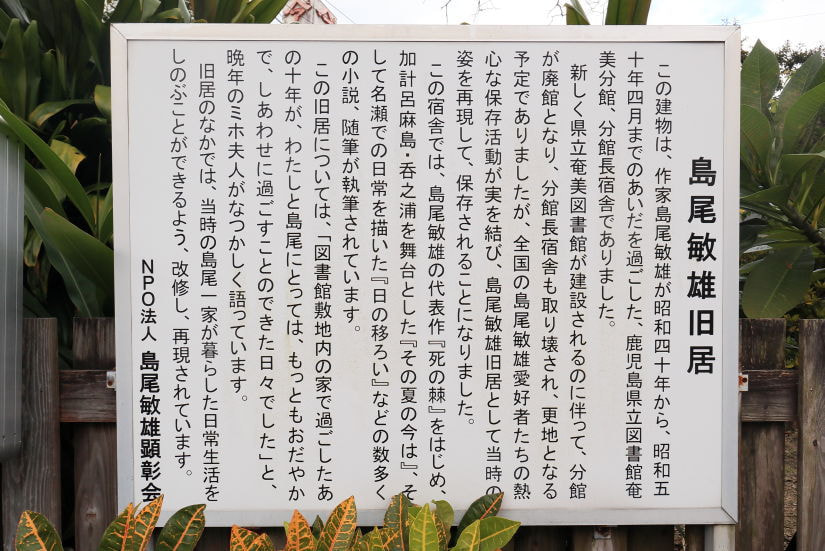 島尾敏雄旧居
この建物は、作家島尾敏雄が昭和四十年から、昭和五
十年四月までのあいだを過ごした、鹿児島県立図書館奄
美分館、分館長宿舎でありました。
新しく県立奄美図書館が建設されるのに伴って、分館
が廃館となり、分館長宿舎も取り壊され、更地となる
予定でありましたが、全国の島尾敏雄愛好者たちの熱
心な保存活動が実を結び、島尾敏雄旧居として当時の
姿を再現して、保存されることになりました。
この宿舎では、島尾敏雄の代表作『死の棘』をはじめ、
加計呂麻島・呑之浦を舞台とした『その夏の今は』、そ
して名瀬での日常を描いた『日の移ろい』などの数多く
の小説、随筆が執筆されています。
この旧居については、「図書館敷地内の家で過ごしたあ
の十年が、わたしと島尾にとっては、もっともおだやか
で、しあわせに過ごすことのできた日々でした」と、
晩年のミホ夫人がなつかしく語っています。
旧居のなかでは、当時の島尾一家が暮らした日常生活を
しのぶことができるよう、改修し、再現されています。
NPO法人 島尾敏雄顕彰会